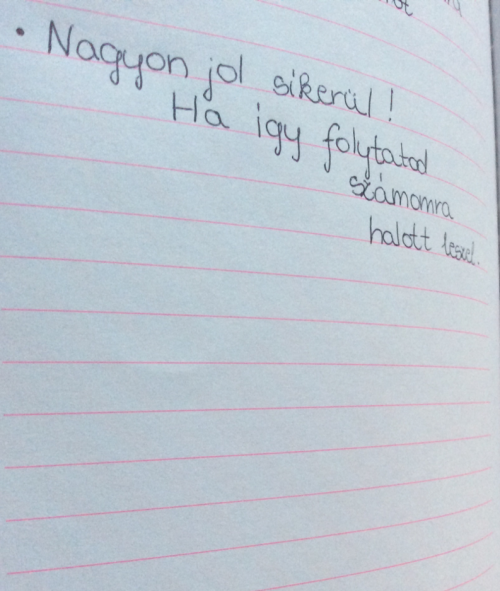 • Nagyon jol sikerül!
Ha igy folytatod
számomra
halott leszel.